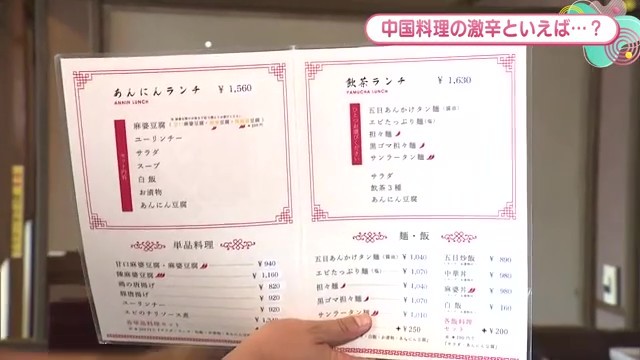 中国料理の激辛といえば…？
あんにんランチ ¥1,560
ANNIN LUNCH
麻婆豆腐
ユーリンチー
サラダ
スープ
白飯
お漬物
あんにん豆腐
飲茶ランチ ¥1,630
YAMUCHA LUNCH
五目あんかけタン麺(醤油)
エビたっぷり麺(塩)
担々麺
黒ゴマ担々麺
サンラータン麺
サラダ
飲茶3種
あんにん豆腐
単品料理
甘口麻婆豆腐・麻婆豆腐 ¥940
辣麻婆豆腐 ¥1,160
鶏の唐揚げ ¥820
豚唐揚げ ¥920
ユーリンチー ¥920
エビのチリソース煮
麺・飯
五目あんかけタン麺(醤油) ¥1,040
エビたっぷり麺(塩) ¥1,070
担々麺 ¥1,040
黒ゴマ担々麺 ¥1,070
サンラータン麺
+¥250
五目炒飯 ¥890
中華丼 ¥980
麻婆丼 ¥980
白飯 ¥160
各飯料理
セット +¥200